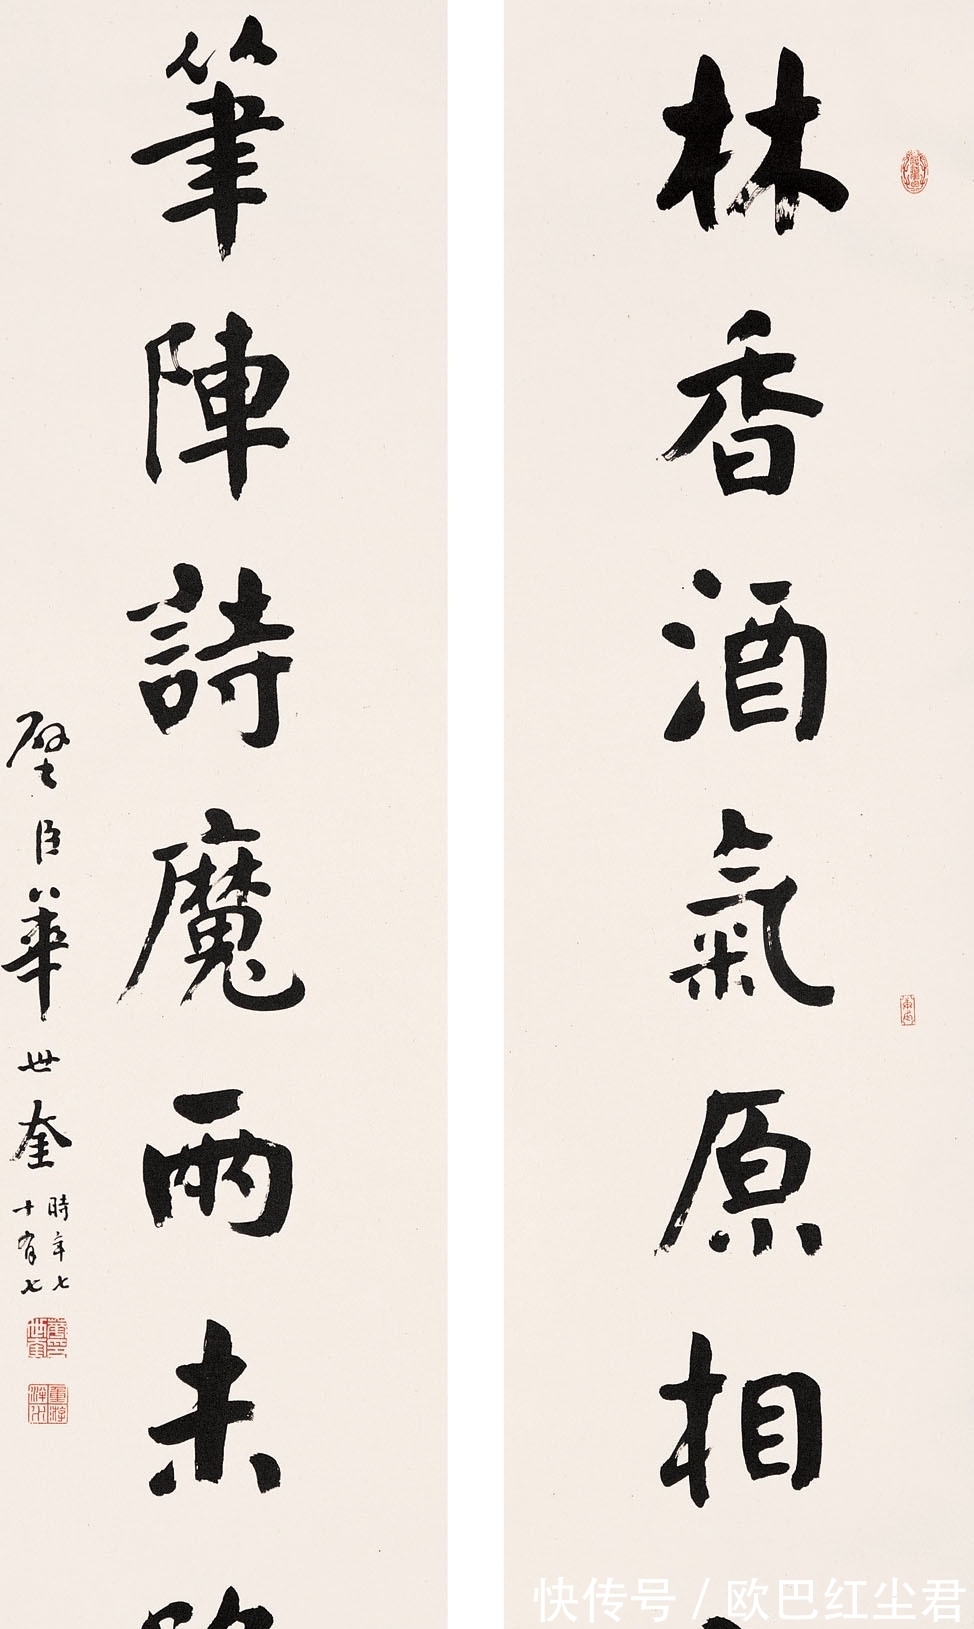 林香酒氣原相
筆陣詩魔兩未
壁臣華世奎
時年七
十有七
快传号 / 欧巴红尘君